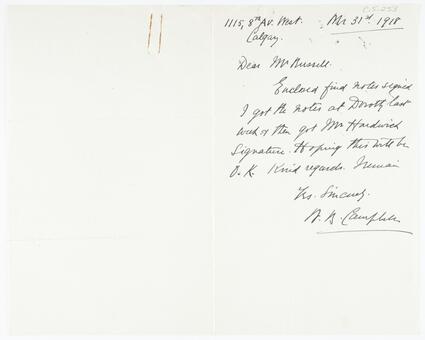 C.S-253
1115, 8th Av. West. Mr 31st 1918
Calgary.
Dear Mr Russell.
Enclosed find notes signed
I got the notes at Dorothy last
week & then got Mr Hardwick
Signature. Hoping this will be
O.K. Kind regards. I remain
Yrs. Sincerely.
A. B. Campbell